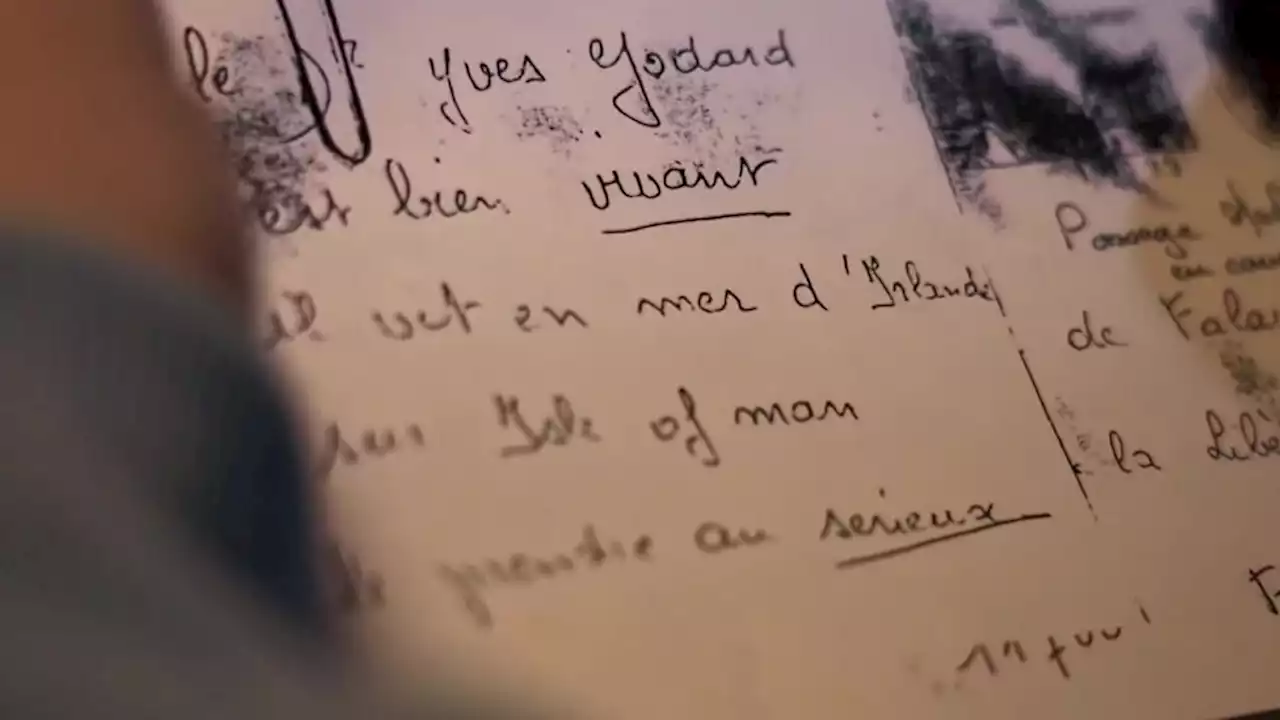 le Dr Yves Godard
est bien vivant
il vit en mer d'Irlande
sur Isle of man
prendre au serieux
Passage
en
de
la